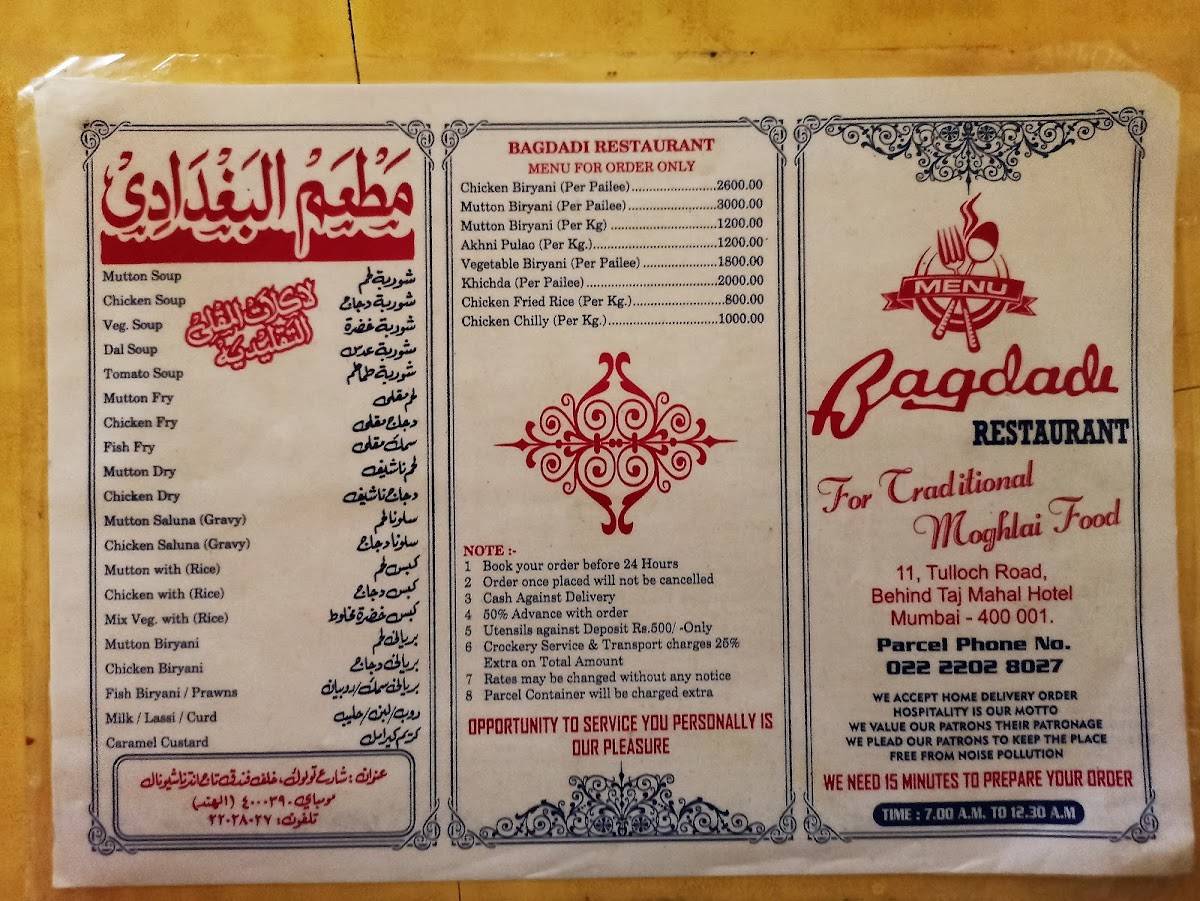 مَطْعَمْ البَغْدَادِىْ
Mutton Soup شوربة لحم
Chicken Soup شوربة دجاج
Veg. Soup شوربة خضرة
Dal Soup شوربة عدس
Tomato Soup شوربة طماطم
Mutton Fry لحم مقلى
Chicken Fry دجاج مقلى
Fish Fry سمك مقلى
Mutton Dry لحم ناشيف
Chicken Dry دجاج ناشيف
Mutton Saluna (Gravy) سلونا لحم
Chicken Saluna (Gravy) سلونا دجاج
Mutton with (Rice) كبس لحم
Chicken with (Rice) كبس دجاج
Mix Veg. with (Rice) كبس خضرة مخلوط
Mutton Biryani بريانى لحم
Chicken Biryani بريانى دجاج
Fish Biryani / Prawns بريانى سمك/روبيان
Milk / Lassi / Curd روب/لبن/حليب
Caramel Custard كريم كيرامل
عنوان : شارع تولوك، خلف فندق تاج انترناشيونال
مومباي ٤٠٠٠٣٩٠ (الهند)
تلفون: ٢٢٠٢٨٠٢٧
BAGDADI RESTAURANT
MENU FOR ORDER ONLY
Chicken Biryani (Per Pailee)......................2600.00
Mutton Biryani (Per Pailee)......................3000.00
Mutton Biryani (Per Kg)......................1200.00
Akhni Pulao (Per Kg.)......................1200.00
Vegetable Biryani (Per Pailee)......................1800.00
Khichda (Per Pailee)......................2000.00
Chicken Fried Rice (Per Kg.)......................800.00
Chicken Chilly (Per Kg.)......................1000.00
NOTE :-
1 Book your order before 24 Hours
2 Order once placed will not be cancelled
3 Cash Against Delivery
4 50% Advance with order
5 Utensils against Deposit Rs.500/ -Only
6 Crockery Service & Transport charges 25%
Extra on Total Amount
7 Rates may be changed without any notice
8 Parcel Container will be charged extra
OPPORTUNITY TO SERVICE YOU PERSONALLY IS
OUR PLEASURE
MENU
Bagdadi
RESTAURANT
For Traditional
Moghlai Food
11, Tulloch Road,
Behind Taj Mahal Hotel
Mumbai - 400 001.
Parcel Phone No.
022 2202 8027
WE ACCEPT HOME DELIVERY ORDER
HOSPITALITY IS OUR MOTTO
WE VALUE OUR PATRONS THEIR PATRONAGE
WE PLEAD OUR PATRONS TO KEEP THE PLACE
FREE FROM NOISE POLLUTION
WE NEED 15 MINUTES TO PREPARE YOUR ORDER
TIME : 7.00 A.M. TO 12.30 A.M